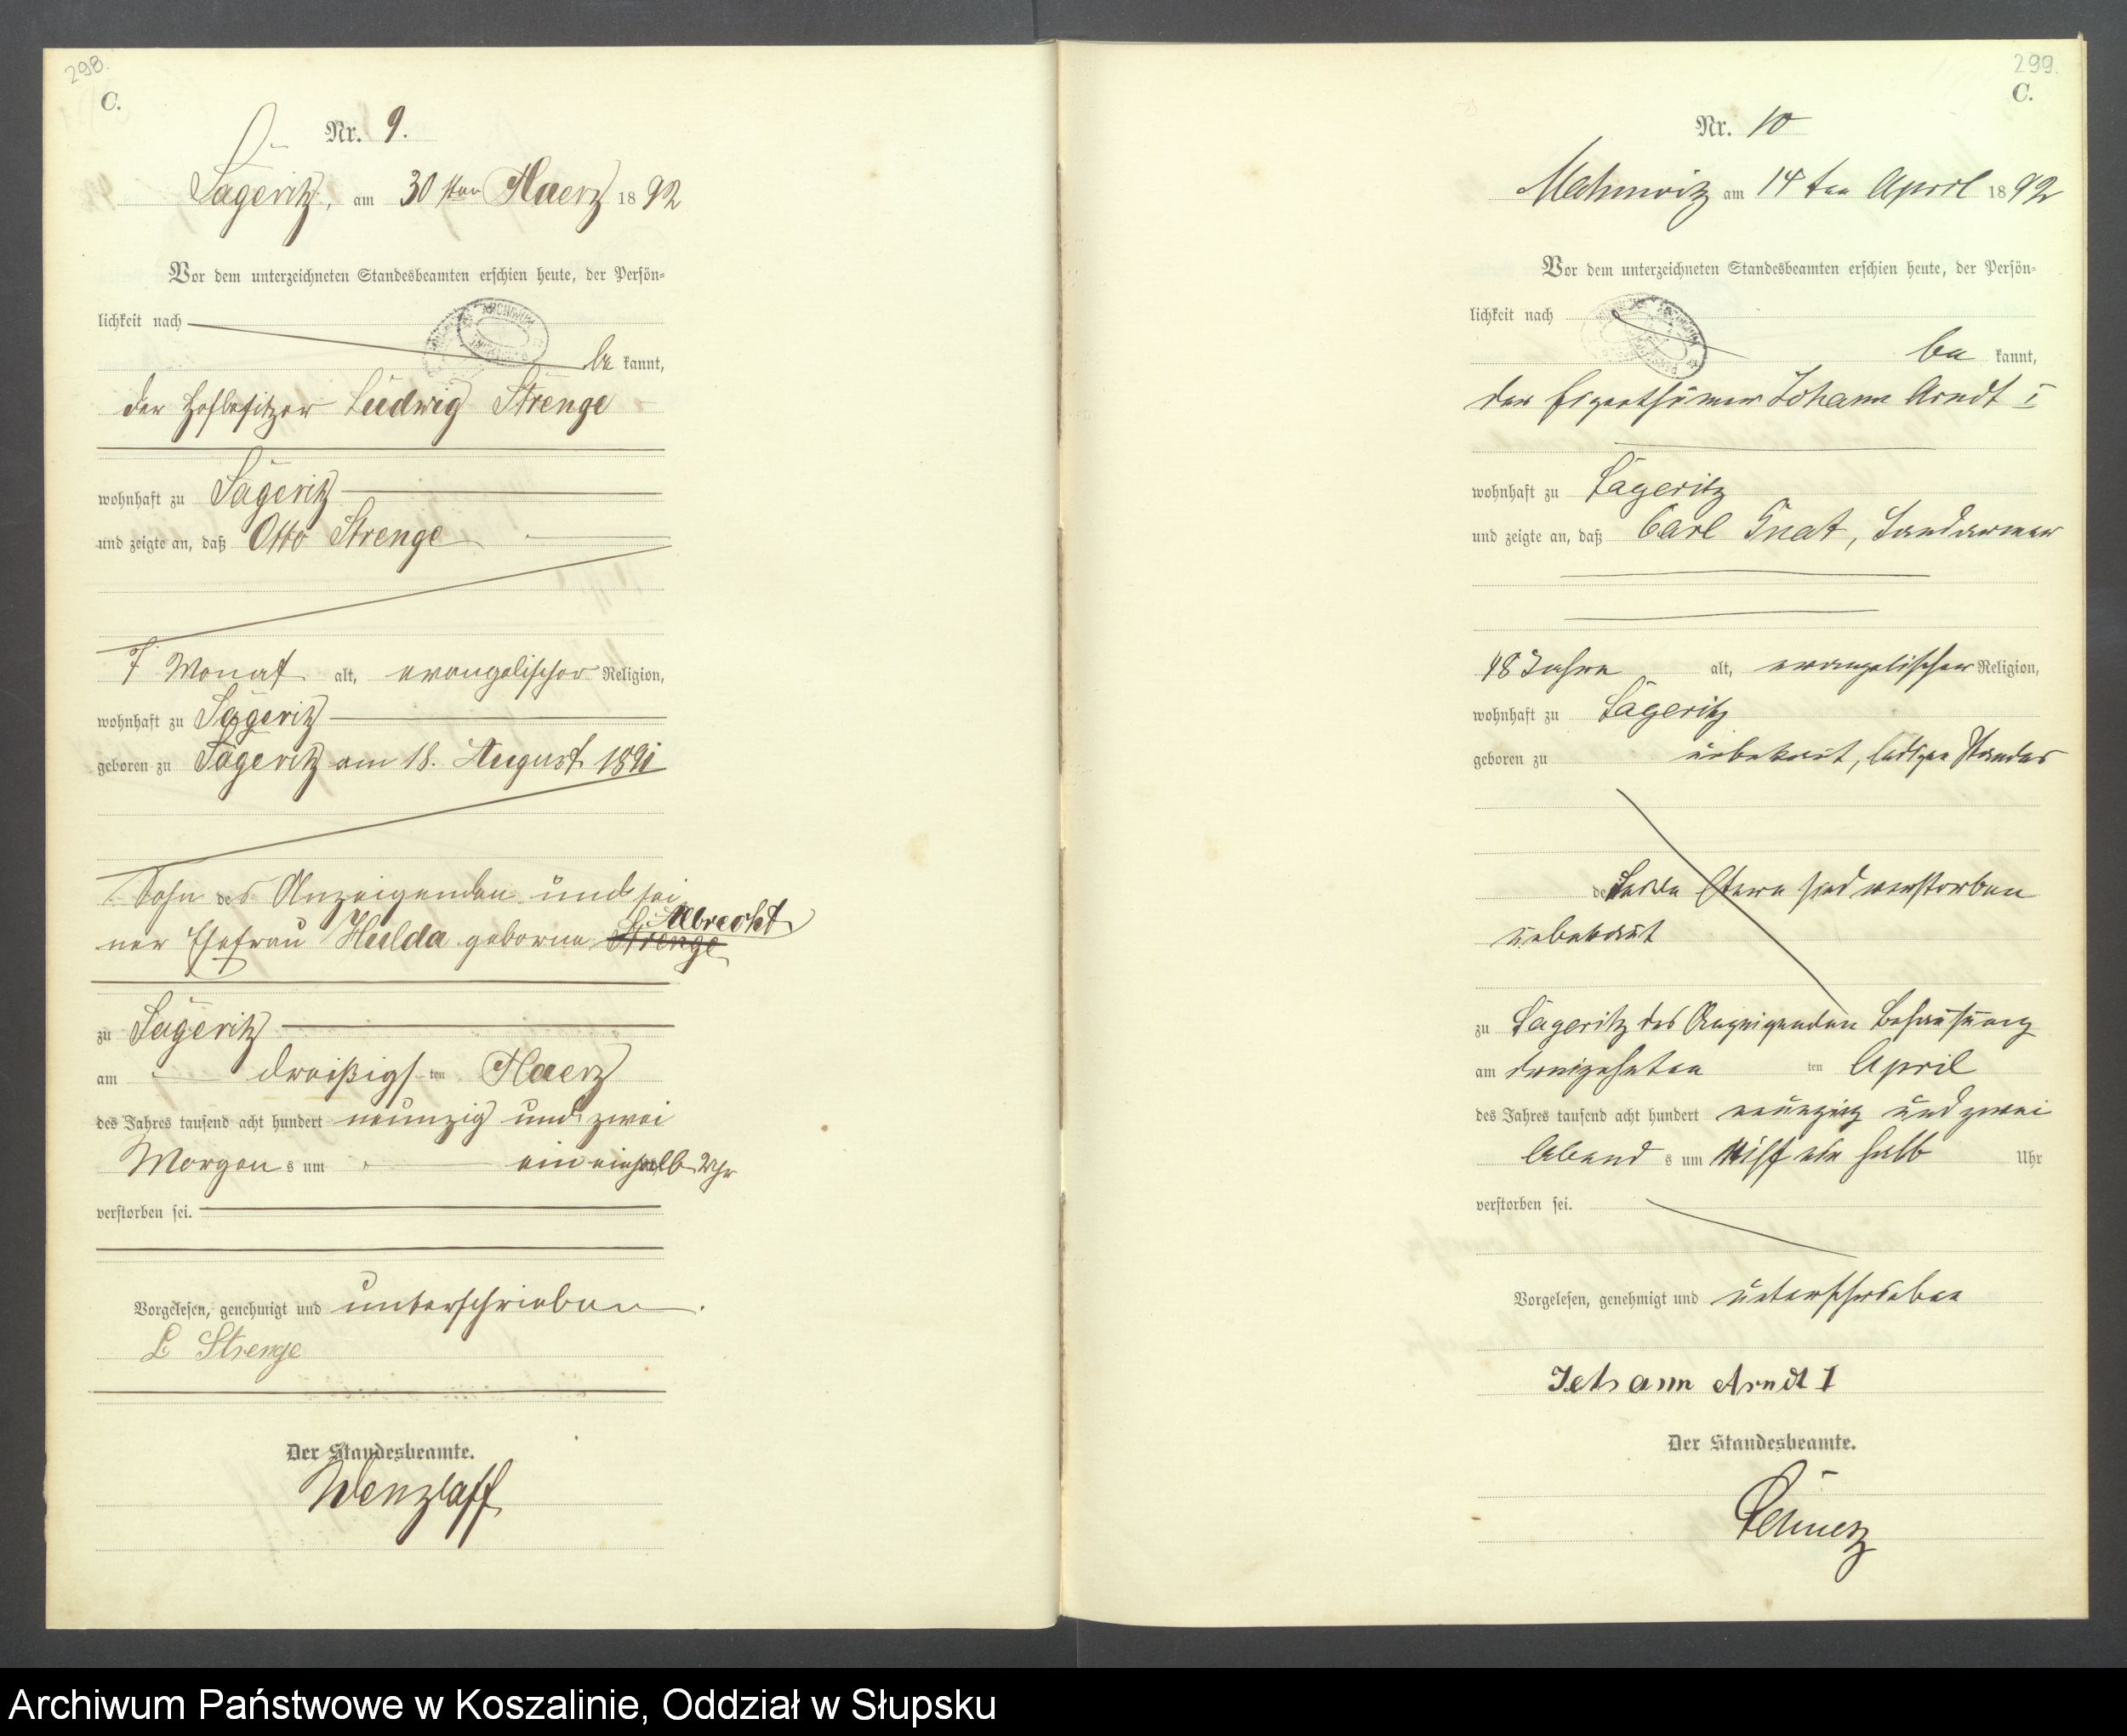 298.
C.
Nr. 9.
Sageritz, am 30sten Maerz 1892
Vor dem unterzeichneten Standesbeamten erschien heute, der Persön-
lichkeit nach
be kannt,
der Hofbesitzer Ludwig Strenge
wohnhaft zu Sageritz
und zeigte an, daß Otto Strenge
7 Monat alt, evangelischer Religion,
wohnhaft zu Sageritz
geboren zu Sageritz am 18. August 1891
Sohn des Anzeigenden und sei
ner Ehefrau Hulda geborne Strenge Albrecht
zu Sageritz
am dreißigsten Maerz
des Jahres tausend acht hundert neunzig und zwei
Morgens um ein einhalb Uhr
verstorben sei.
Vorgelesen, genehmigt und unterschrieben.
L Strenge
Der Standesbeamte.
Wenzlaff
299.
C.
Nr. 10
Mahnwitz am 14ten April 1892
Vor dem unterzeichneten Standesbeamten erschien heute, der Persön-
lichkeit nach
be kannt,
der Eigenthümer Johann Arndt I
wohnhaft zu Sageritz
und zeigte an, daß Carl Gnat,
48 Jahre alt, evangelischer Religion,
wohnhaft zu Sageritz
geboren zu unbekannt, ledigen Standes
de beide Eltern sind verstorben
unbekannt
zu Sageritz des Anzeigenden Behausung
am dreizehnten ten April
des Jahres tausend acht hundert neunzig und zwei
Abends um ein halb Uhr
verstorben sei.
Vorgelesen, genehmigt und unterschrieben
Johann Arndt I
Der Standesbeamte.
Archiwum Państwowe w Koszalinie, Oddział w Słupsku